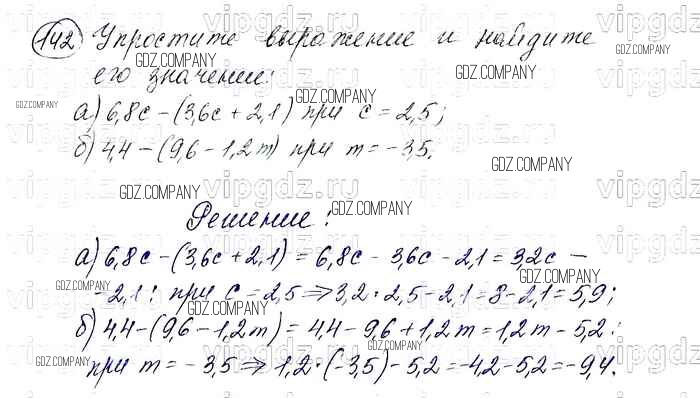 142 Упростите выражение и найдите
его значение:
а) 6,8с - (3,6с + 2,1) при с = 2,5;
б) 4,4 - (9,6 - 1,2m) при m = -3,5.
Решение:
а) 6,8с - (3,6с + 2,1) = 6,8с - 3,6с - 2,1 = 3,2с -
- 2,1: при с = 2,5 ⇒ 3,2 · 2,5 - 2,1 = 8 - 2,1 = 5,9;
б) 4,4 - (9,6 - 1,2m) = 4,4 - 9,6 + 1,2m = 1,2m - 5,2:
при m = -3,5 ⇒ 1,2 · (-3,5) - 5,2 = -4,2 - 5,2 = -9,4.
vipgdz.ru
GDZ.COMPANY